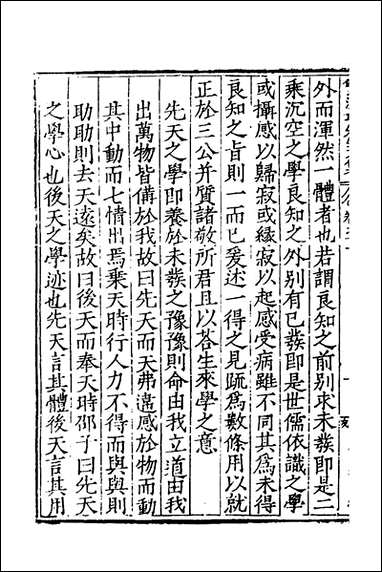 外而渾然一體者也若謂良知之前別求未發即是二
乘沉空之學良知之外別有已發即是世儒依識之學
或攝感以歸寂或緣寂以起感受病雖不同其爲未得
良知之旨則一而已爰述一得之見䟽爲數條用以就
正於三公并質諸敬所君且以荅生來學之意
先天之學即養於未發之豫豫則命由我立道由我
出萬物皆備於我故曰先天而天弗違感於物而動
其中動而七情出焉乗天時行人力不得而與與則
助助則去天遠矣故曰後天而奉天時邵子曰先天
之學心也後天之學迹也先天言其體後天言其用